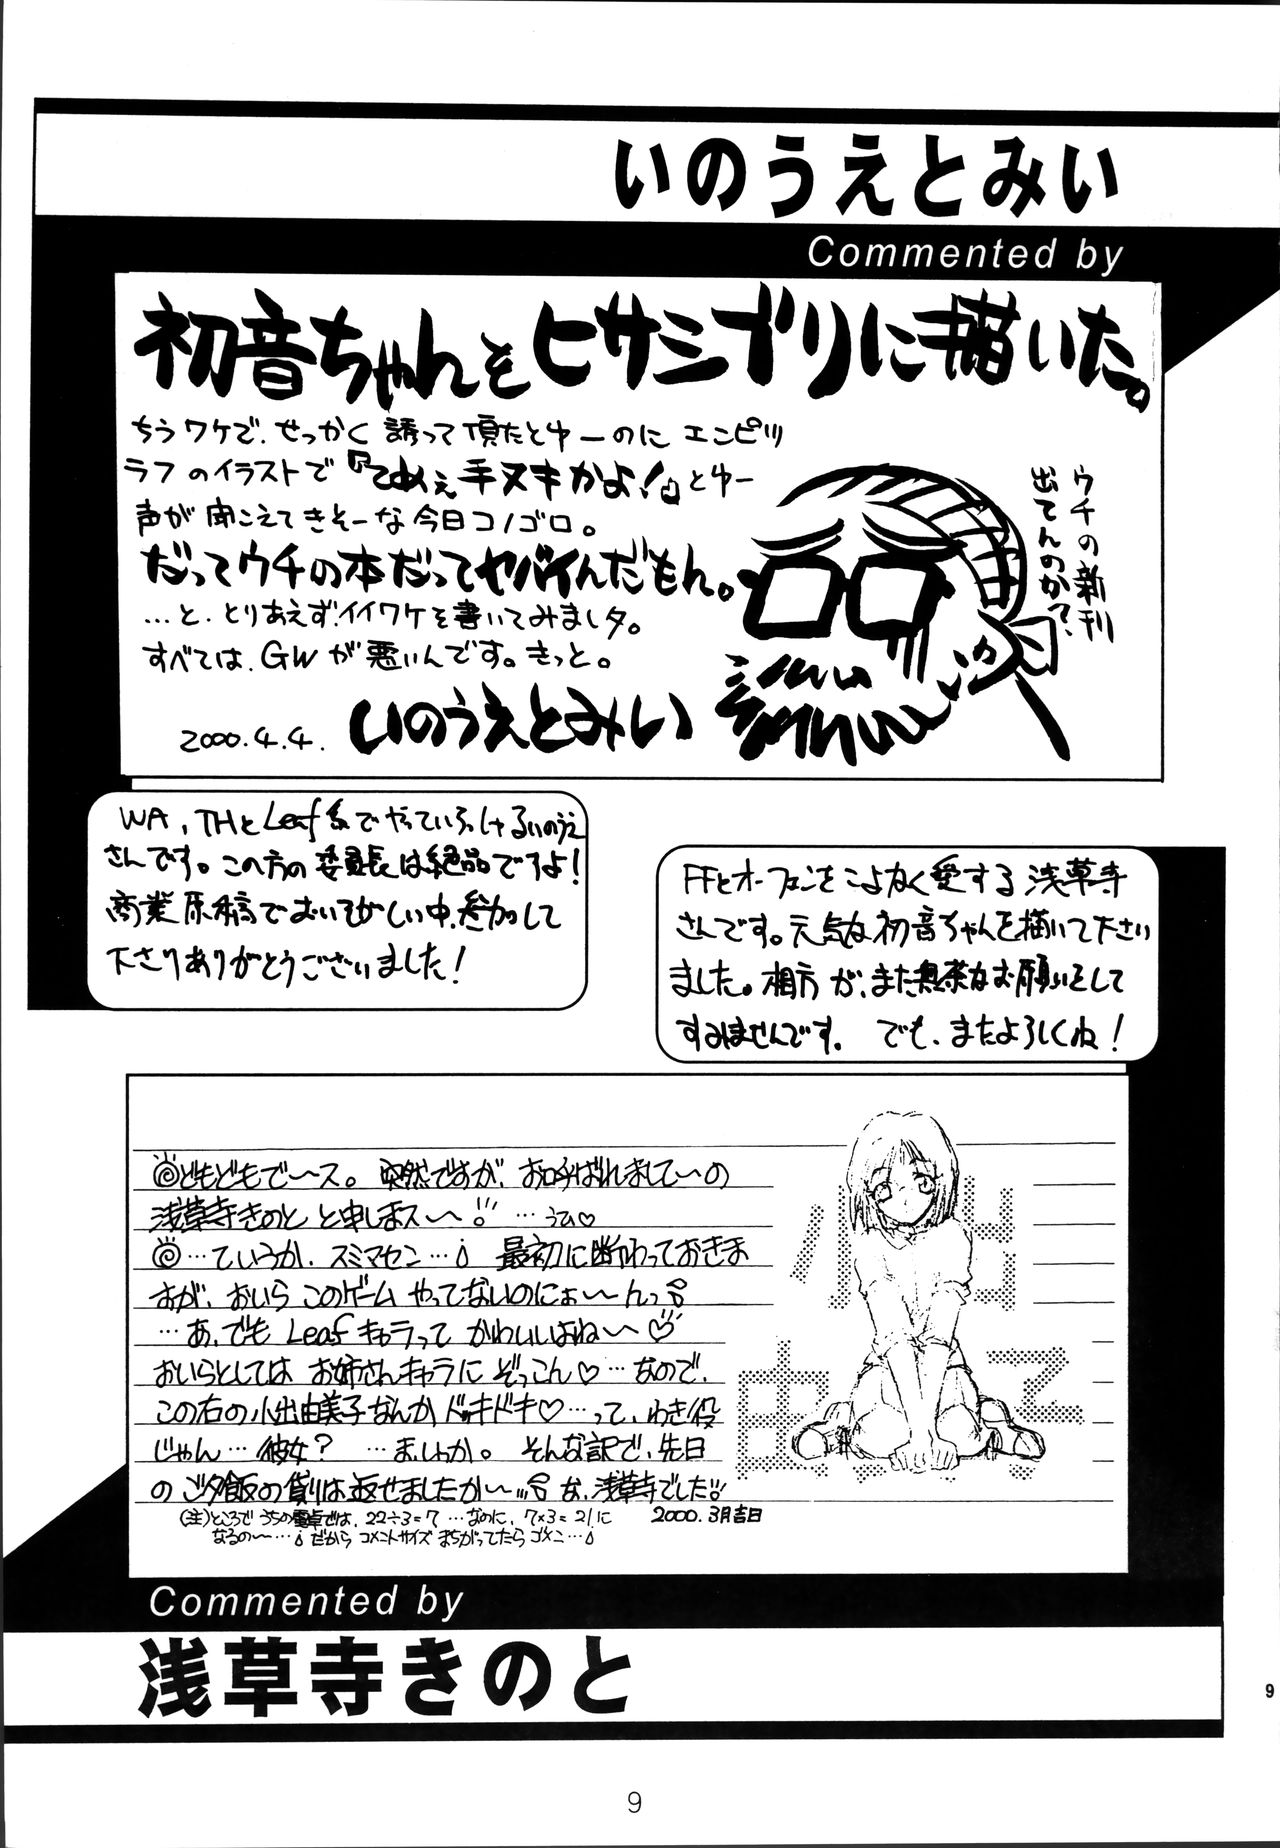 いのうえとみい
Commented by
初音ちゃんをヒサシブリに描いた。
ちうワケで、せっかく誘って頂たとゆーのに エンピツ
ラフのイラストで『てめぇ手ヌキかよ!』とゆー
声が聞こえてきそーな今日コノゴロ。
だってウチの本だってヤバイんだもん。
…と、とりあえずイイワケを書いてみましタ。
すべては、GWが悪いんです。きっと。
2000.4.4. いのうえとみい
ウチの新刊
出てんのか?
WA、THとLeaf系でやっていらっしゃるいのうえ
さんです。この方の委員長は絶品ですよ!
商業原稿でおいそがしい中、参加して
下さりありがとうございました!
FFとオーフェンをこよなく愛する浅草寺
さんです。元気な初音ちゃんを描いて下さい
ました。相方が、また無茶なお願いをして
すみませんです。 でも、またよろしくね!
どもどもで〜ス。 突然ですが、お呼ばれしまして〜の
浅草寺きのと と申しまス〜!! …うひ♡
…ていうか、スミマセン… 最初に断わっておきま
すが、おいら このゲーム やってないのにぉ〜んっ
…あ、でも Leafキャラって かわいいよね〜♡
おいらとしては お姉さんキャラに ぞっこん♡…なので、
この右の小出由美子なんか ドッキドキ♡…って、わき役
じゃん…彼女? …ま、いっか。 そんな訳で、先日
の ご夕飯の借りは返せましたか〜… な、浅草寺でした!!
(注)ところで うちの電卓では、22÷3=7 …なのに、7×3=21に
なるの〜… だから コメントサイズ まちがってたら ゴメン…
2000.3月吉日
小出
由美子
Commented by
浅草寺きのと
9
9